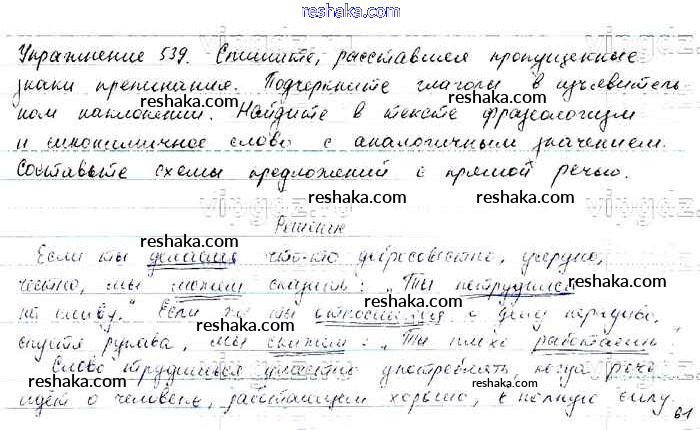 reshaka.ru
Упражнение 539. Спишите, расставляя пропущенные
знаки препинания. Подчеркните глаголы в изъявитель-
ном наклонении. Найдите в тексте фразеологизм
и синонимичное слово с аналогичным значением.
Составьте схемы предложений с прямой речью.
Решение
Если ты делаешь что-то добросовестно, усердно,
честно, мы можем сказать: „Ты потрудился
на славу.“ Если же ты относишься к делу нерадиво,
спустя рукава, мы скажем: „Ты плохо работаешь“
Слово трудишься уместно употреблять, когда речь
идет о человеке, работающем хорошо, в полную силу.
61